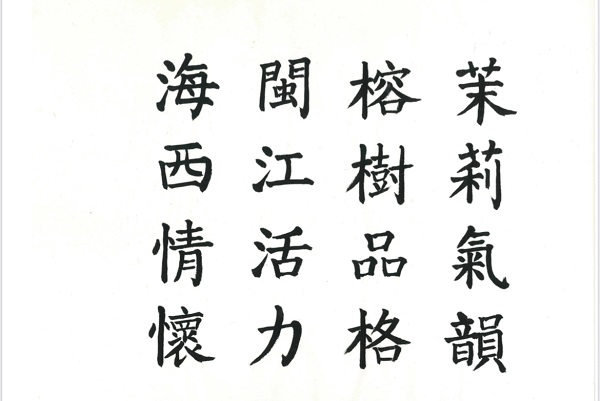 茉莉氣韻
榕樹品格
閩江活力
海西情懷